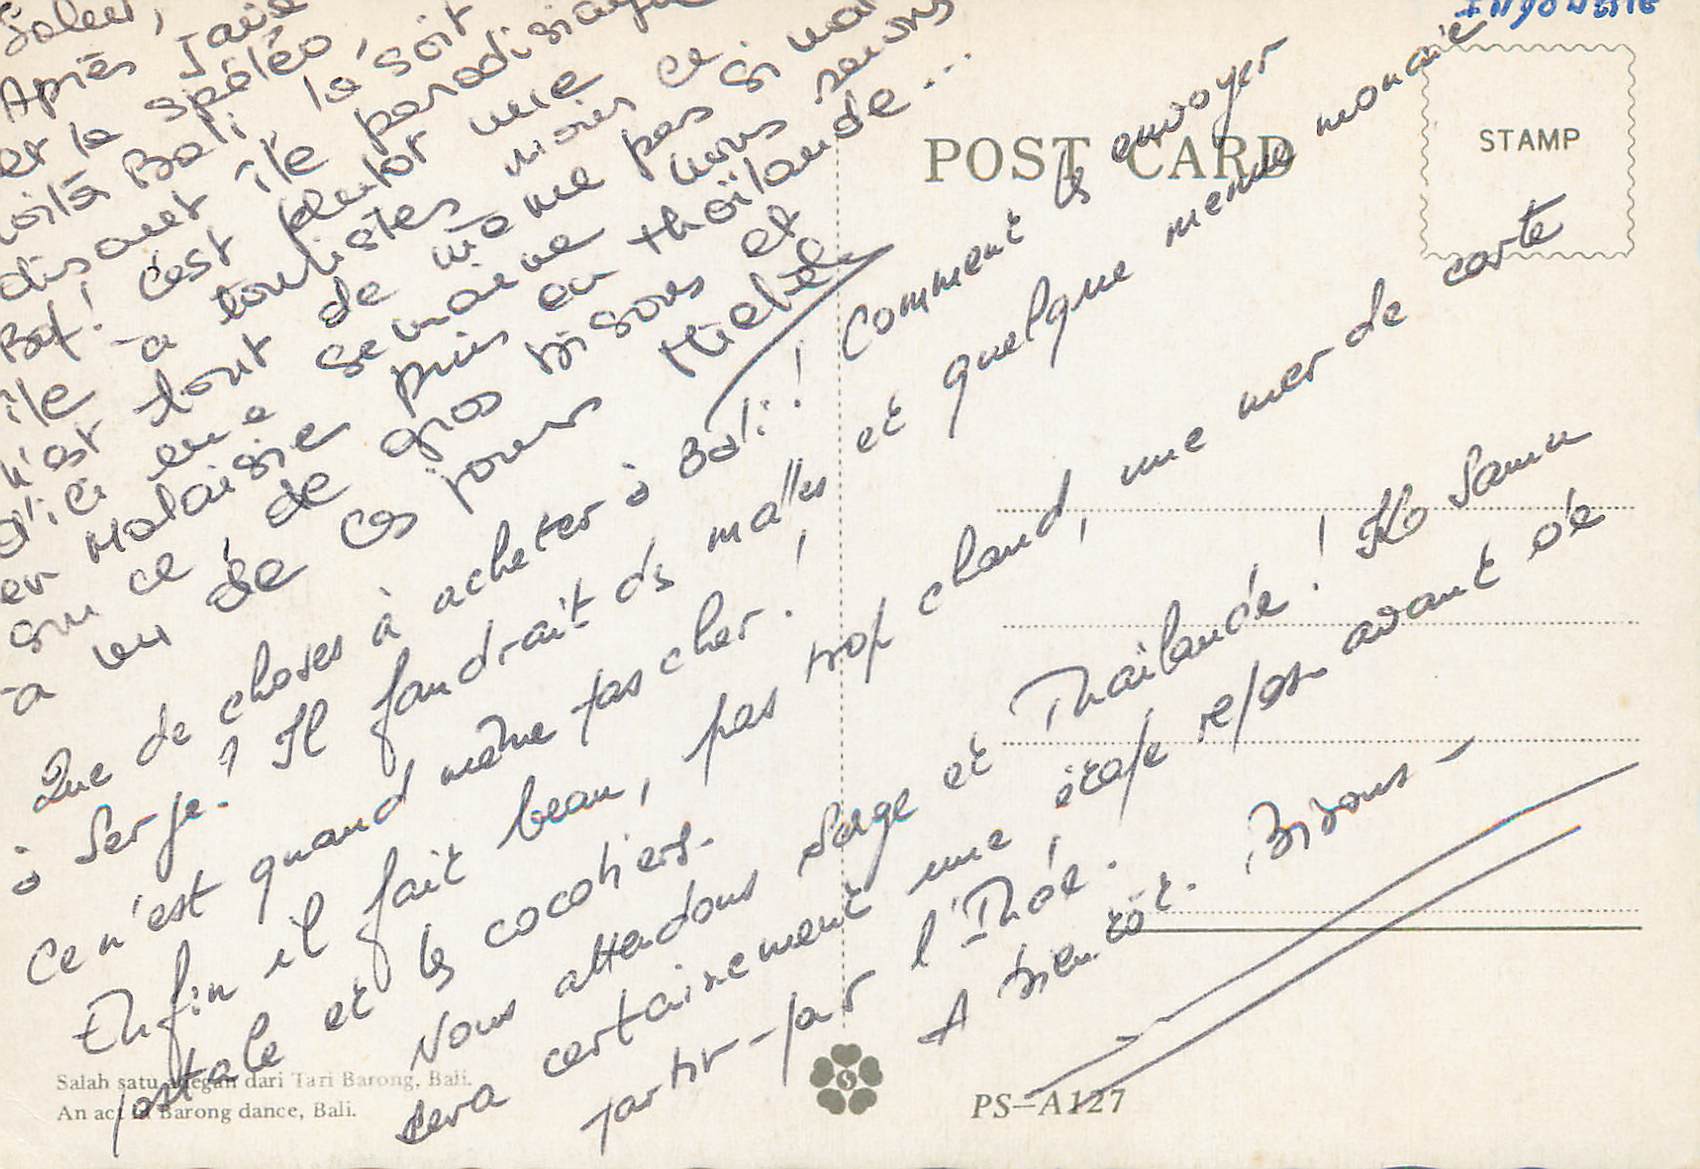 Indonésie
Salut,
Après Java
et la spéléo,
voilà Bali, la soit
disant île paradisiaque
Bof! C'est plutôt une
île à touristes mais ce
n'est tout de même pas si mal
d'ici une semaine nous serons
en Malaisie puis en Thaïlande...
de gros bisous et
à un de ces jours Michel
Que de choses à acheter à Bali! Comment les envoyer
à Serge? Il faudrait des malles et quelque menue monnaie
Ce n'est quand même pas cher!!
Enfin il fait beau, pas trop chaud, une mer de carte
postale et les cocotiers.
Nous attendons Serge et Thaïlande! Ko Samu
sera certainement une étape repos avant de
partir par l'Inde.
A bientôt. Bisous
POST CARD
STAMP
Salah satu adegan dari Tari Barong, Bali.
An act of Barong dance, Bali.
PS-A127